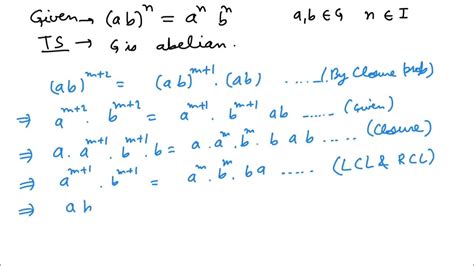 Given → (ab)ⁿ = aⁿ bⁿ a,b ∈ G n ∈ I
TS → G is abelian.
(ab)ᵐ⁺² = (ab)ᵐ⁺¹ . (ab) ...... (By Closure prob)
⇒ aᵐ⁺² . bᵐ⁺² = aᵐ⁺¹ . bᵐ⁺¹ ab ...... (Given)
⇒ a . aᵐ⁺¹ . bᵐ⁺¹ . b = a . aᵐ . bᵐ . b a b ..... (Closure)
⇒ aᵐ⁺¹ . bᵐ⁺¹ = aᵐ . bᵐ . b a ..... (LCL & RCL)
⇒ a b